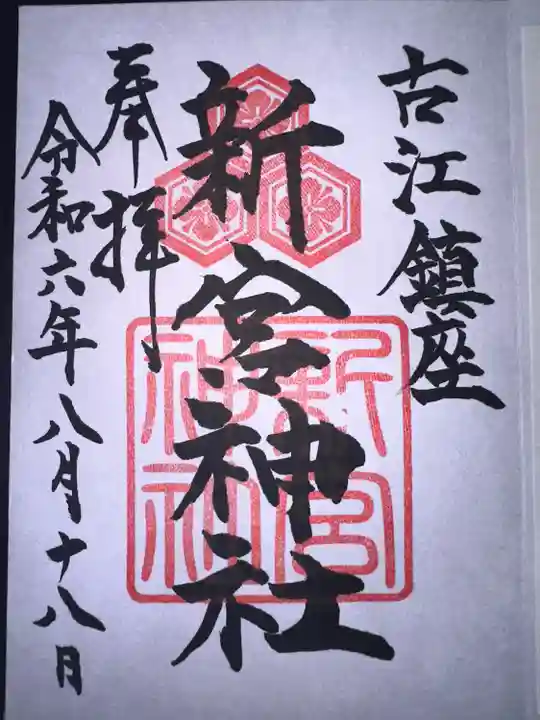 古江鎮座
新宮神社
奉拝
令和六年八月十八日
新宮
神社